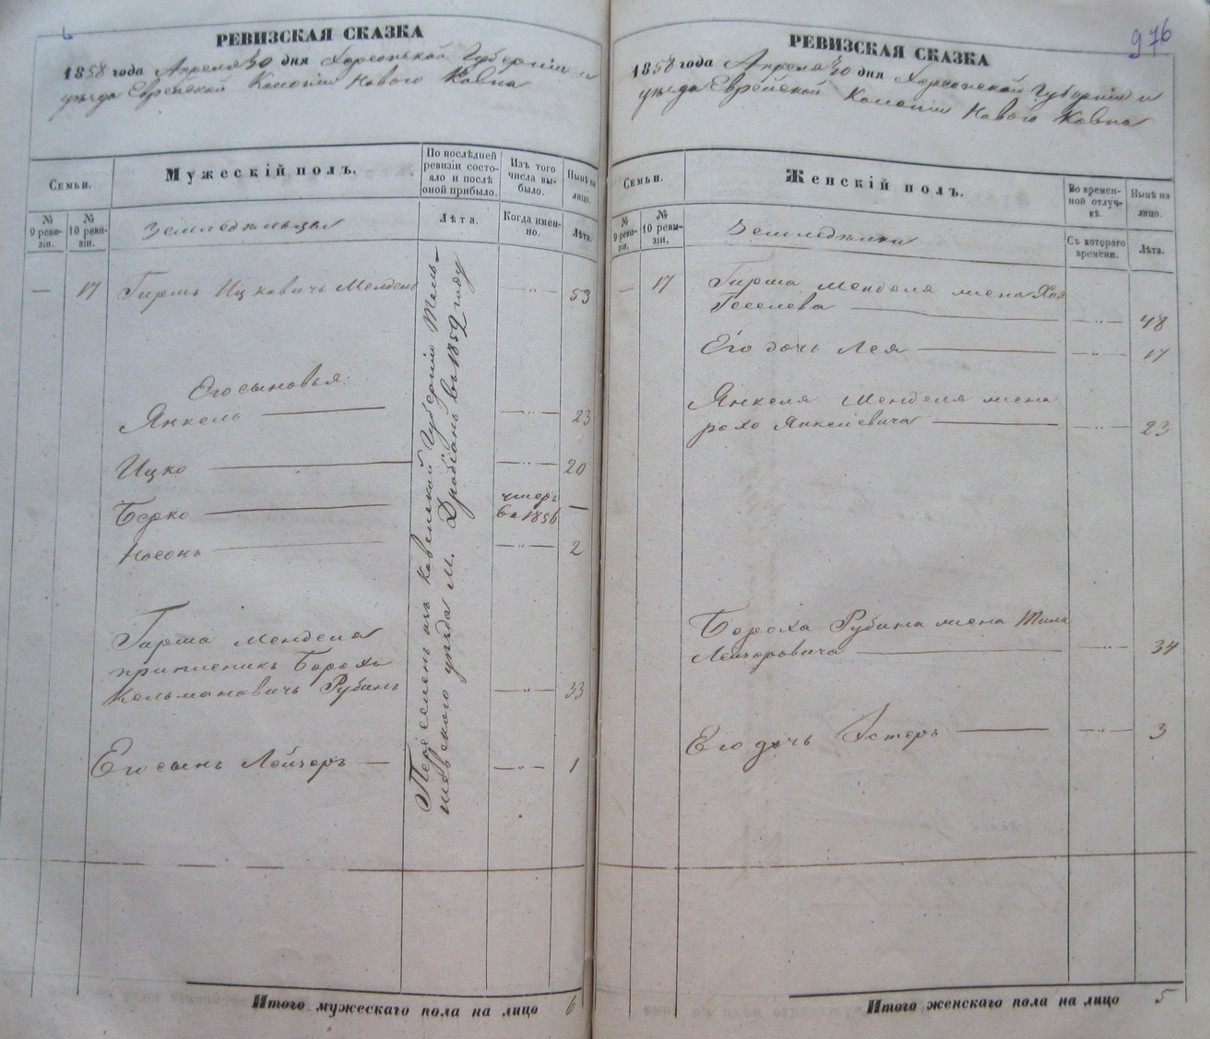 РЕВИЗСКАЯ СКАЗКА
1858 года Апреля 30 дня Херсонской Губернии и
уѣзда Еврейской Колонии Нового Ковна
Семьи.
Мужескій полъ.
По послѣдней ревизіи состояло и послѣ оной прибыло.
Изъ того числа выбыло.
Нынѣ на лицо.
№ 9 ревизіи.
№ 10 ревизіи.
Земледѣльцы
Лѣта.
Когда именно.
Лѣта.
— 17 Гиршъ Ицковичь Мендель —〃— 53
Его сыновья:
Янкель —〃— 23
Ицко —〃— 20
Берко умеръ въ 1856 —
Носонъ —〃— 2
Гирша Менделя
приписникъ Борохъ
Кельмановичь Рубинъ —〃— 33
Его сынъ Лейзеръ —〃— 1
Переселенъ изъ Ковенской Губерніи Тель-
шевского уѣзда м. Дробіанъ въ 1852 году
Итого мужескаго пола на лицо 6
976
РЕВИЗСКАЯ СКАЗКА
1858 года Апреля 30 дня Херсонской Губернии и
уѣзда Еврейской Колонии Нового Ковна
Семьи.
Женскій полъ.
Во временной отлучкѣ.
Нынѣ на лицо.
№ 9 ревизіи.
№ 10 ревизіи.
Земледѣлки
Съ котораго времени.
Лѣта.
— 17 Гирша Менделя жена Хая
Иоселева —〃— 48
Его дочь Лея —〃— 17
Янкеля Менделя жена
рохо Янкелевича —〃— 23
Бороха Рубина жена
Лейзоровича —〃— 34
Его дочь Эстеръ —〃— 3
Итого женскаго пола на лицо 5